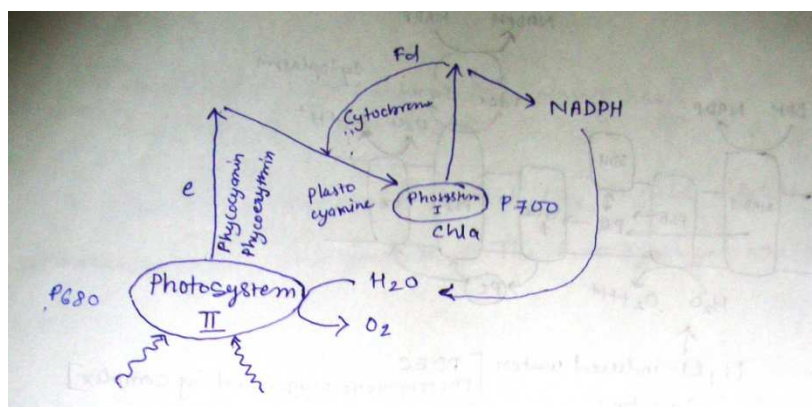 Fd
Cytochrome
NADPH
e
Phylcocyanin
Phycoerythrin
plasto
cyanine
Photosystem
I
P700
Chla
P680
Photosystem
II
H2O
O2